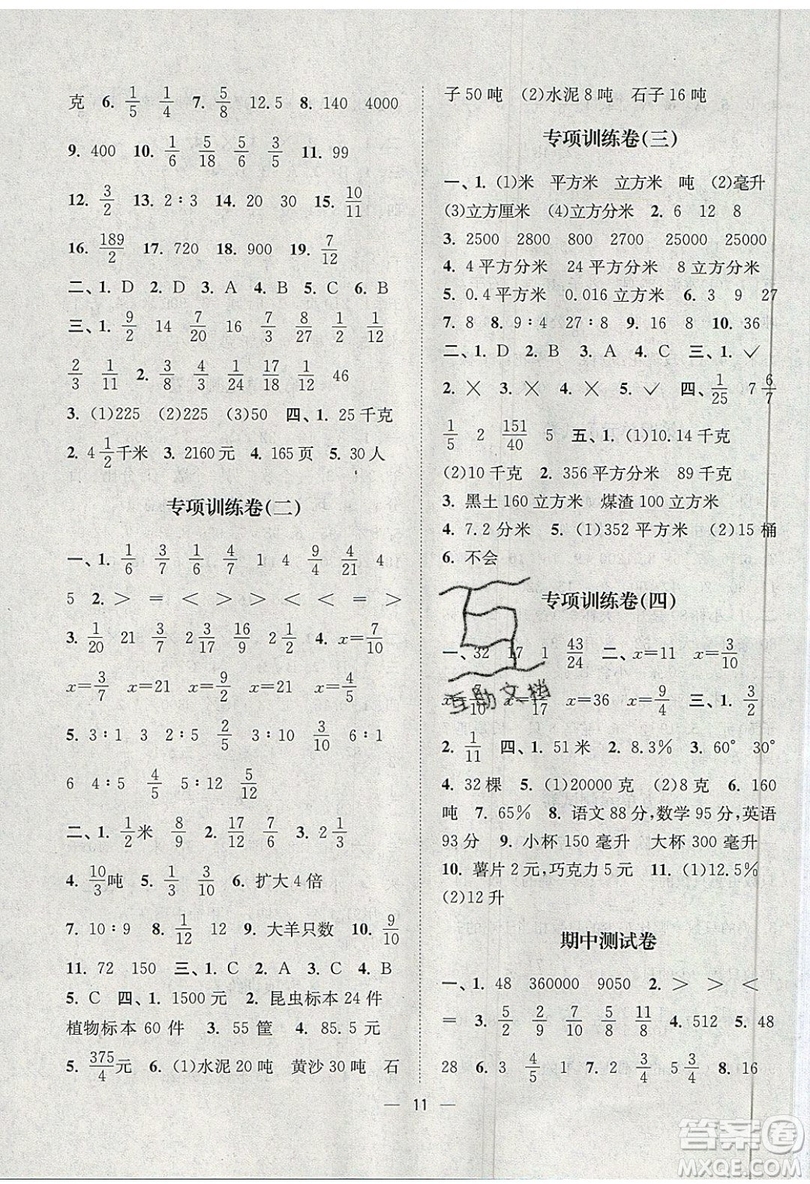 克 6. 1/5 1/4 7. 5/8 12.5 8. 140 4000
9. 400 10. 1/6 5/18 5/6 3/5 11. 99
12. 3/2 13. 2∶3 14. 20 30 15. 10/11
16. 189/2 17. 720 18. 900 19. 7/12
二、1. D 2. D 3. A 4. B 5. C 6. B
三、1. 9/2 14 7/20 16 7/3 8/27 1/2 1/12
2/3 1/11 2. 3/8 4/3 1/24 17/18 1/12 46
3. (1)225 (2)225 (3)50 四、1. 25 千克
2. 4 1/2 千米 3. 2160 元 4. 165 页 5. 30 人
专项训练卷(二)
一、1. 1/6 3/7 1/6 4/7 1 4 9/4 4/21 4
5 2. ＞ ＝ ＞ ＞ ＜ ＜ ＜ ＝ ＞
3. 1/20 21 3/2 16/9 2 1/2 4. x＝7/10
x＝3/7 x＝21 x＝9/2 x＝21 x＝3/4
5. 3∶1 3 2∶5 2/5 3∶10 3/10 6∶1
6 4∶5 4/5 5∶9 5/9
二、1. 1/2 米 8/9 2. 17/12 7/6 3. 2 1/3
4. 10/3 吨 5. 1/3 3/10 6. 扩大 4 倍
7. 10∶9 8. 1/12 9. 大羊只数 10. 9/10
11. 72 150 三、1. C 2. A 3. B 4. A
5. C 四、1. 1500 元 2. 昆虫标本 24 件
植物标本 60 件 3. 55 筐 4. 85.5 元
5. 375/4 元 6. (1)水泥 20 吨 黄沙 30 吨 石
子 50 吨 (2)水泥 8 吨 石子 16 吨
专项训练卷(三)
一、1. (1)米 平方米 立方米 吨 (2)毫升
(3)立方厘米 (4)立方分米 2. 6 12 8
3. 2500 2800 800 2800 25000 25000
4. 4 平方分米 24 平方分米 8 立方分米
5. 0.4 平方米 0.016 立方米 6. 3 9 27
7. 8 8. 9∶4 27∶8 9. 16 10. 36
二、1. D 2. B 3. A 4. C 三、1. ✓
2. × 3. × 4. × 5. ✓ 四、1/25 7 6/7
1/5 2 151/40 5 五、1. (1)10.14 千克
(2)10 千克 2. 356 平方分米 89 千克
3. 黑土 160 立方米 煤渣 100 立方米
4. 7.2 分米 5. (1)352 平方米 (2)15 桶
6. 不会
专项训练卷(四)
一、32 17 1 43/24 二、x＝11 x＝3/10
x＝36 x＝9/4 三、1. 3/2
2. 1/11 四、1. 51 米 2. 8.3% 3. 60° 30°
4. 32 棵 5. (1)20000 克 (2)8 克 6. 160
吨 7. 65% 8. 语文 88 分，数学 95 分，英语
93 分 9. 小杯 150 毫升 大杯 300 毫升
10. 薯片 2 元，巧克力 5 元 11. (1)12.5%
(2)12 升
期中测试卷
一、1. 48 360000 9050 2. ＞ ＞ ＜
＝ 3. 5/2 9/2 7/10 5/8 11/8 4. 512 5. 48
28 6. 3 4/5 1 7. 2 3/4 3/4 8. 16
— 11 —
互助文档
答案圈
MXQE.COM